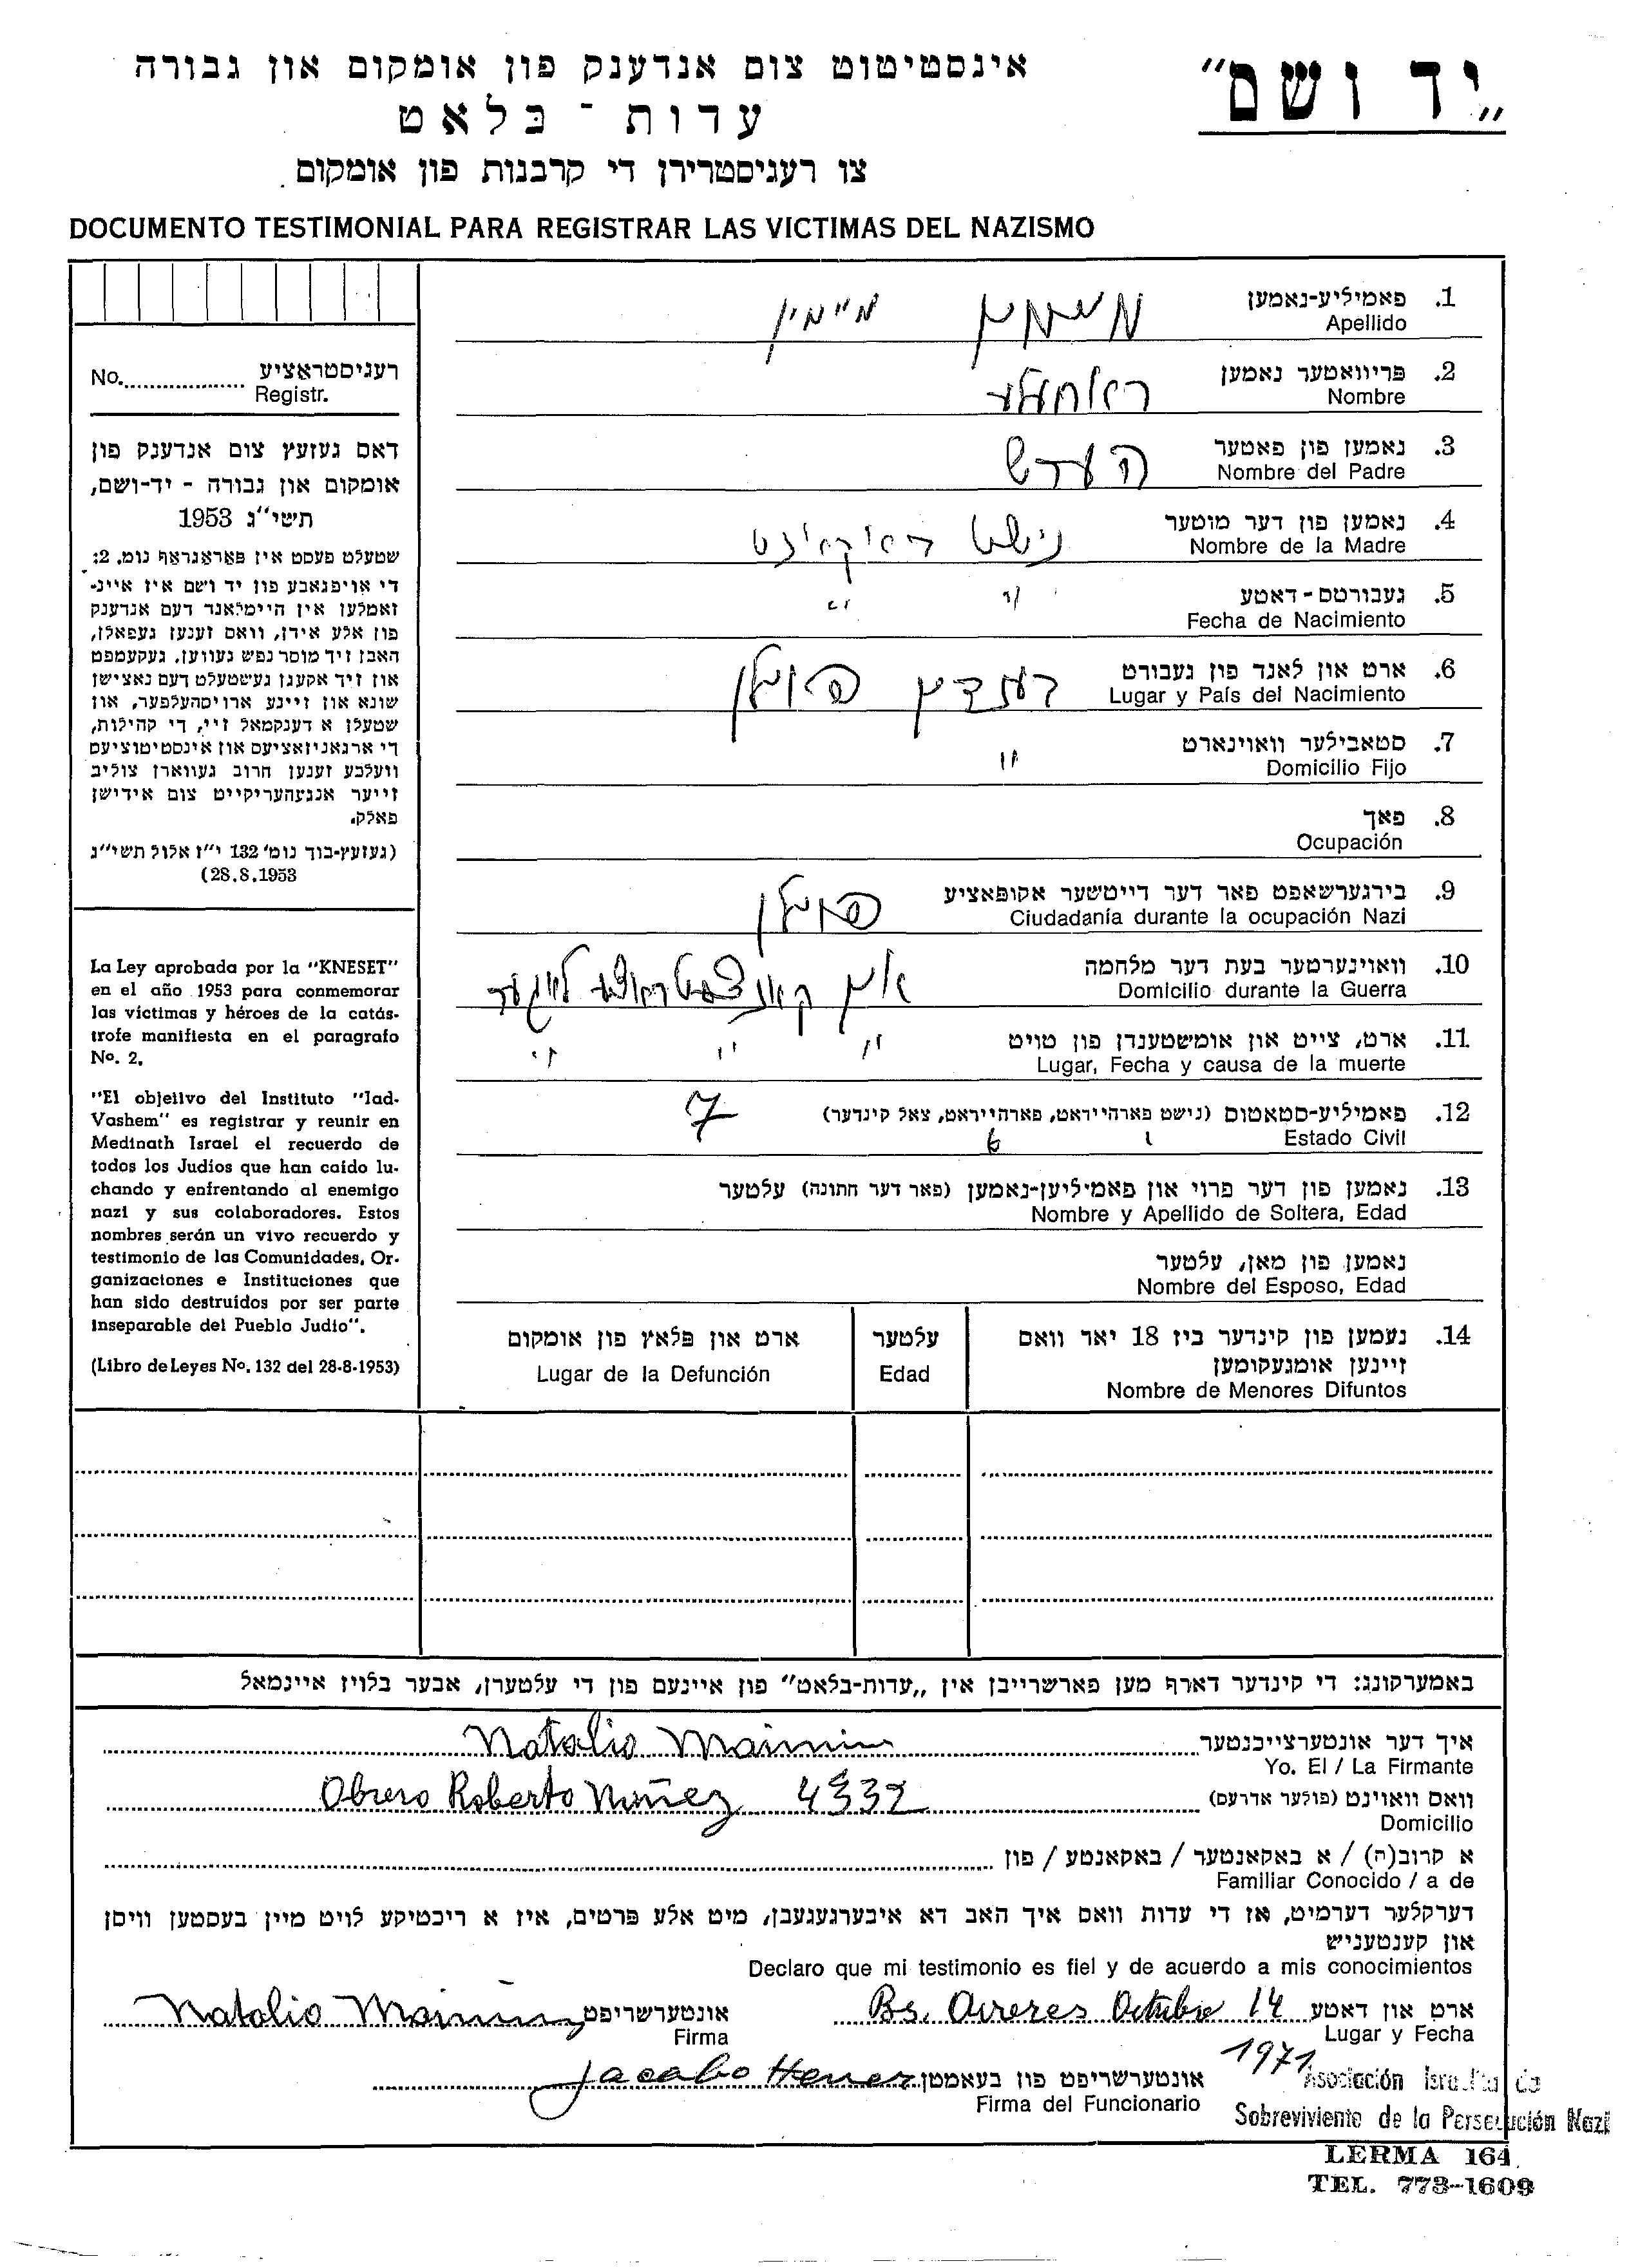 „יד ושם"
אינסטיטוט צום אנדענק פון אומקום און גבורה
עדות - בלאט
צו רעגיסטרירן די קרבנות פון אומקום
DOCUMENTO TESTIMONIAL PARA REGISTRAR LAS VICTIMAS DEL NAZISMO
רעגיסטראציע No.
Registr.
דאס געזעץ צום אנדענק פון
אומקום און גבורה - יד-ושם,
תשי"ג 1953
שטעלט פעסט אין פאראגראף נומ. 2:
די אויפגאבע פון יד ושם איז איינ-
זאמלען אין היימלאנד דעם אנדענק
פון אלע אידן, וואס זענען געפאלן,
האבן זיך מוסר נפש געווען, געקעמפט
און זיך אקעגן געשטעלט דעם נאצישן
שונא און זיינע ארויסהעלפער, און
שטעלן א דענקמאל זיי, די קהילות,
די ארגאניזאציעס און אינסטיטוציעס
וועלכע זענען חרוב געווארן צוליב
זייער אנגעהעריקייט צום אידישן
פאלק.
(געזעץ-בוך נומ' 132 י"ז אלול תשי"ג
28.8.1953)
La Ley aprobada por la "KNESET"
en el año 1953 para conmemorar
las víctimas y héroes de la catás-
trofe manifiesta en el paragrafo
No. 2.
"El objetivo del Instituto "Iad-
Vashem" es registrar y reunir en
Medinath Israel el recuerdo de
todos los Judíos que han caído lu-
chando y enfrentando al enemigo
nazi y sus colaboradores. Estos
nombres serán un vivo recuerdo y
testimonio de las Comunidades, Or-
ganizaciones e Instituciones que
han sido destruidos por ser parte
inseparable del Pueblo Judio".
(Libro de Leyes No. 132 del 28-8-1953)
1. פאמיליע-נאמען מיימין
Apellido
2. פריוואטער נאמען
Nombre
3. נאמען פון פאטער הערש
Nombre del Padre
4. נאמען פון דער מוטער נישט
Nombre de la Madre
5. געבורטס-דאטע " "
Fecha de Nacimiento
6. ארט און לאנד פון געבורט פוילן
Lugar y País del Nacimiento
7. סטאבילער וואוינארט "
Domicilio Fijo
8. פאך
Ocupación
9. בירגערשאפט פאר דער דייטשער אקופאציע פוילן
Ciudadanía durante la ocupación Nazi
10. וואוינערטער בעת דער מלחמה אין קאנצענטראציע לאגער
Domicilio durante la Guerra
11. ארט, צייט און אומשטענדן פון טויט " " "
Lugar, Fecha y causa de la muerte
12. פאמיליע-סטאטוס (נישט פארהייראט, פארהייראט, צאל קינדער) 7
Estado Civil 1 6
13. נאמען פון דער פרוי און פאמיליען-נאמען (פאר דער חתונה) עלטער
Nombre y Apellido de Soltera, Edad
נאמען פון מאן, עלטער
Nombre del Esposo, Edad
14. נעמען פון קינדער ביז 18 יאר וואס עלטער ארט און פלאץ פון אומקום
זיינען אומגעקומען
Nombre de Menores Difuntos Edad Lugar de la Defunción
באמערקונג: די קינדער דארף מען פארשרייבן אין „עדות-בלאט" פון איינעם פון די עלטערן, אבער בלויז איינמאל
איך דער אונטערצייכנטער Natalio Maimin
Yo. El / La Firmante
וואס וואוינט (פולער אדרעס) Obrero Roberto Nuñez 4332
Domicilio
א קרוב(ה) / א באקאנטער / באקאנטע / פון
Familiar Conocido / a de
דערקלער דערמיט, אז די עדות וואס איך האב דא איבערגעגעבן, מיט אלע פרטים, איז א ריכטיקע לויט מיין בעסטען וויסן
און קענטעניש
Declaro que mi testimonio es fiel y de acuerdo a mis conocimientos
ארט און דאטע Bs. Aireres Octubre 14 אונטערשריפט Natalio Maimin
Lugar y Fecha 1971 Firma
אונטערשריפט פון בעאמטן Jacabo Hener
Firma del Funcionario
Asociación Israelita de
Sobreviviente de la Persecución Nazi
LERMA 164
TEL. 773-1609